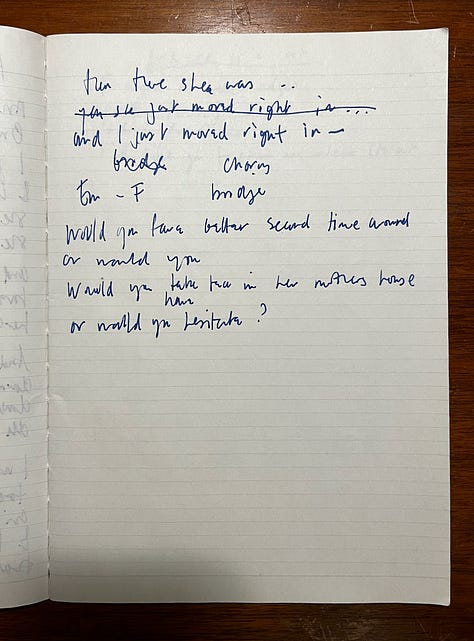 then there she was ...
you see just moved right in ...
and I just moved right in —
bridge chorus
Em - F bridge
Would you fare better second time around
or would you
Would you take tea in her mothers house
have
or would you hesitate ?